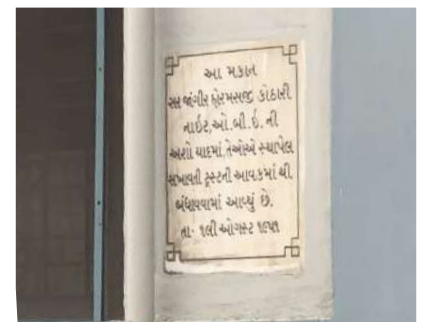 આ મકાન
સર જાંગીર હોરમસજી કોઠારી
નાઇટ, ઓ. બી. ઇ. ની
અશો યાદમાં, તેઓએ સ્થાપેલ
સખાવતી ટ્રસ્ટની આવકમાં થી
બંધાવવામાં આવ્યું છે.
તા. ૧લી ઓગસ્ટ ૧૯૫૧